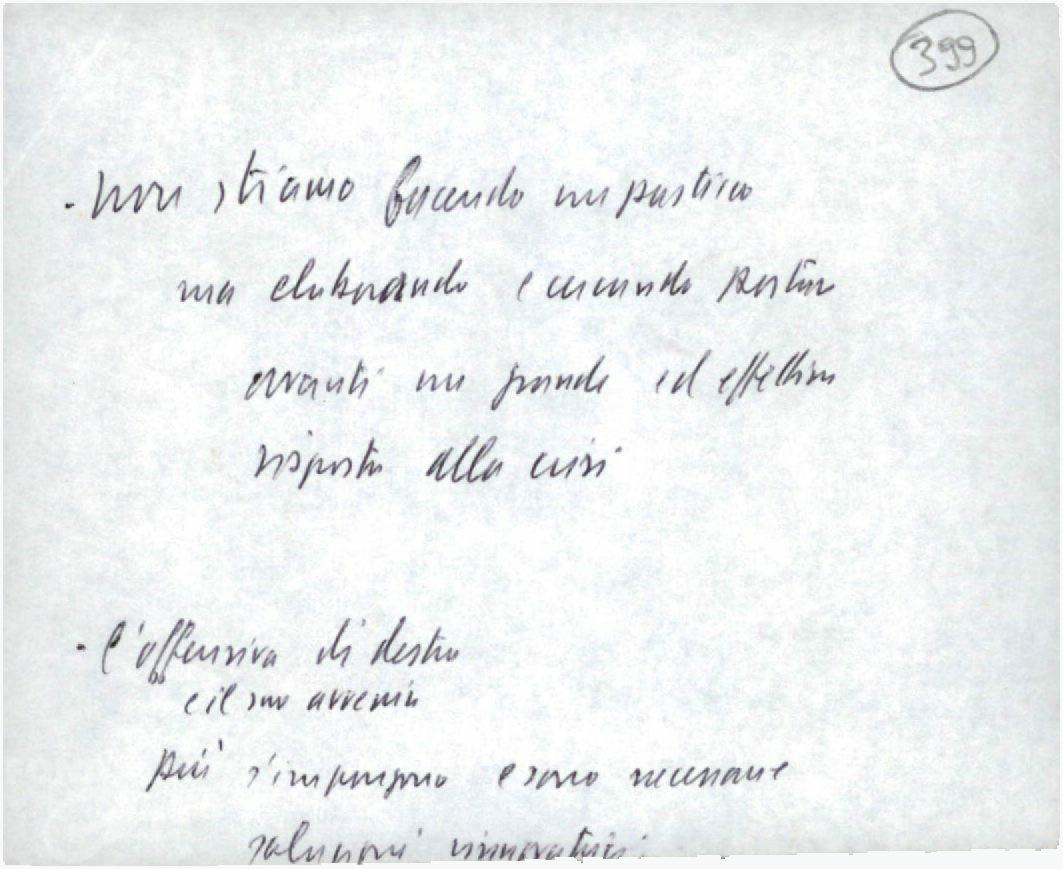 399
- non stiamo facendo un pastiro
ma elaborando e cercando portare
avanti una grande ed effettiva
risposta alla crisi
- l'offensiva di destra
e il suo avvenire
più s'impongono e sono necessarie
soluzioni rinnovatrici